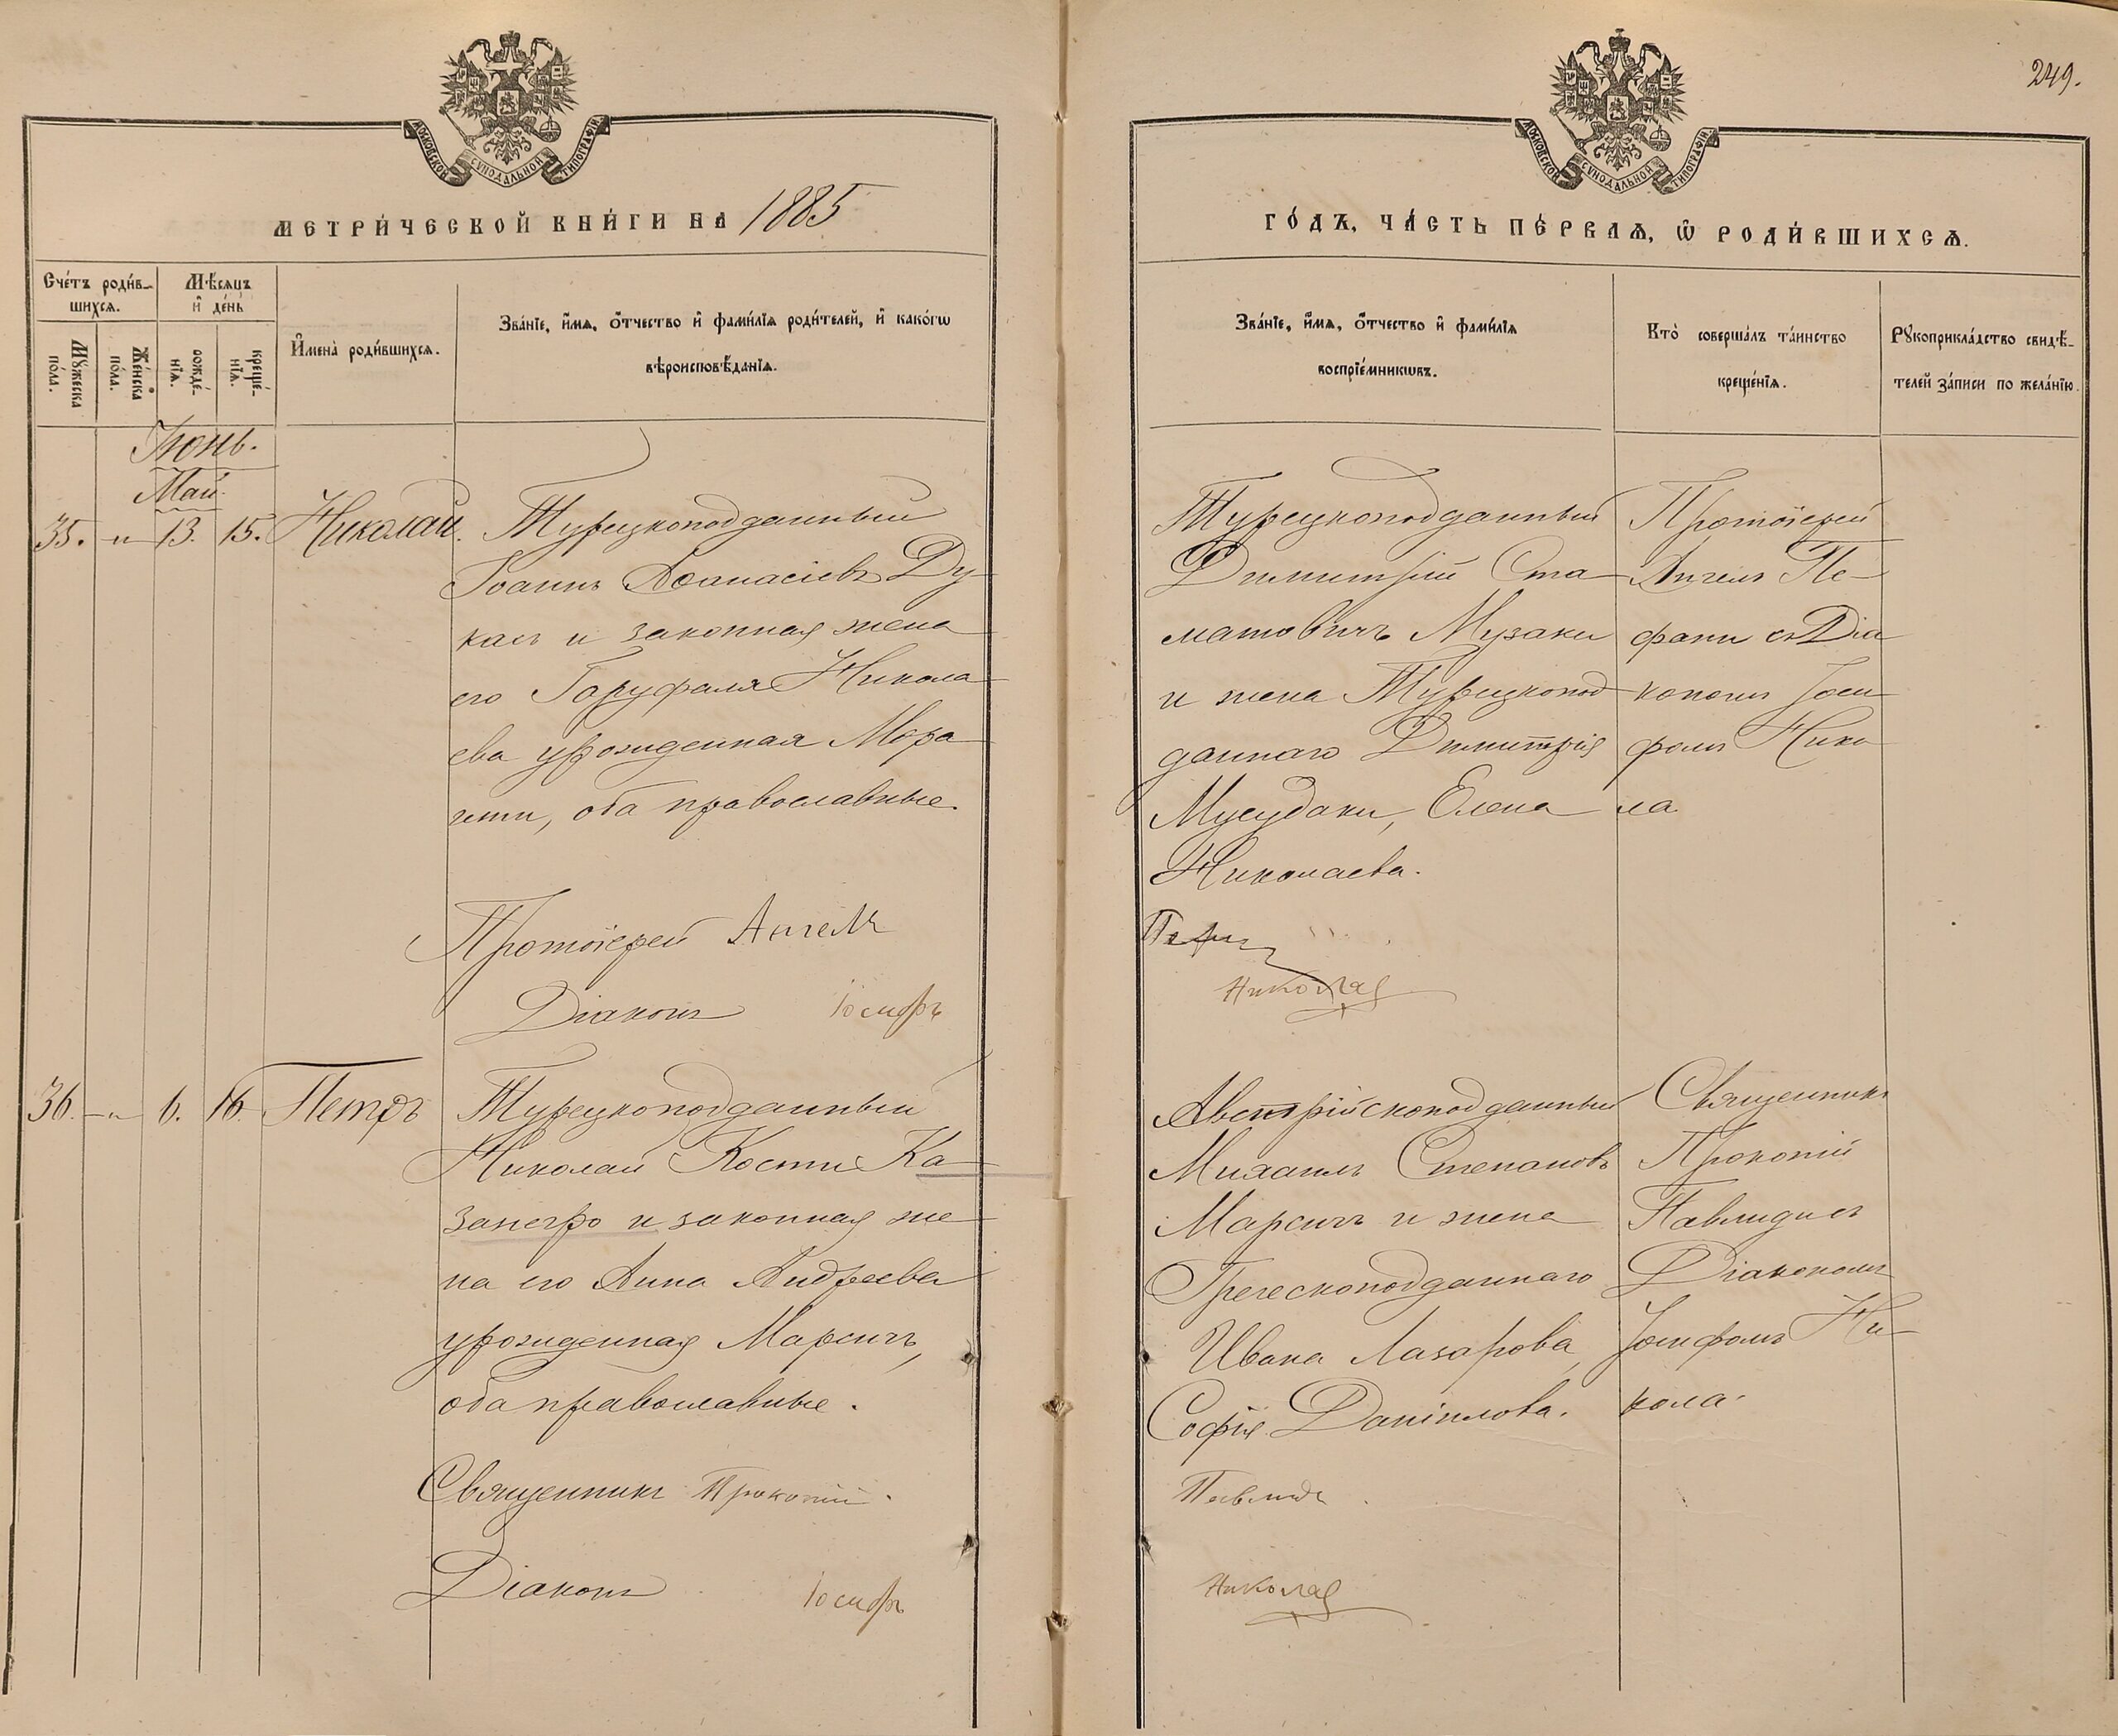 249.
МОСКОВСКОЙ СѴНОДАЛЬНОЙ ТИПОГРАФІИ
МОСКОВСКОЙ СѴНОДАЛЬНОЙ ТИПОГРАФІИ
МЕТРИ́ЧЕСКОЙ КНИ́ГИ НА 1885
ГО́ДЪ, ЧА́СТЬ ПЕ́РВАѦ, Ѽ РОДИ́ВШИХСѦ.
Сче́тъ роди́в-
шихсѧ.
Мѣ́сѧцъ
и҆ де́нь
Мꙋ́жеска по́ла.
Же́нска по́ла.
рожде́-нїѧ.
креще́-нїѧ.
И҆мена̀ роди́вшихсѧ.
Зва́нїе, и҆́мѧ, ѻ҆́тчество и҆ фами́лїѧ роди́телей, и҆ како́гѡ
вѣроисповѣ́данїѧ.
Зва́нїе, и҆́мѧ, ѻ҆́тчество и҆ фами́лїѧ
воспрїе́мникѡвъ.
Кто̀ соверша́лъ та́инство
креще́нїѧ.
Рꙋкоприкла́дство свидѣ́-
телей за́писи по жела́нїю.
Іюнь.
Май.
35. „ 13. 15. Николай.
Турецкоподданный
Іоаннъ Аѳанасіевъ Ду-
касъ и законная жена
его Гаруфаля Никола-
ева урожденная Мора-
ити, оба православные.
Протоіерей Ангелъ
Діаконъ Іосифъ
Турецкоподданный
Димитрій Ста-
матовичъ Музаки
и жена Турецкопод-
даннаго Димитрія
Мусудаки, Елена
Николаева.
Николая
Протоіерей
Ангелъ Пе-
фани съ Діа
кономъ Іоси
фомъ Нико
ла.
36. „ 6. 16. Петръ
Турецкоподданный
Николай Кости Ка-
занегро и законная же-
на его Анна Андреева
урожденная Марсичъ,
оба православные.
Священникъ Прокопій.
Діаконъ Іосифъ
Австрійскоподданный
Михаилъ Степановъ
Марсичъ и жена
Греческоподданнаго
Ивана Лазарова,
Софія Даніилова.
Павлиди
Николая
Священникъ
Прокопій
Павлидисъ
Діакономъ
Іосифомъ Ни-
кола.